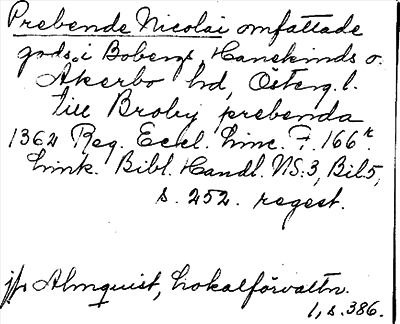 Prebende Nicolai omfattade
gods i Bobergs, Hanekinds o.
Åkerbo hd, Österg. l.
till Broby prebenda
1362 Reg. Eccl. Linc. F. 166r.
Link. Bibl. Handl. NS:3, Bil 5,
s. 252. regest.
jfr Almquist, Lokalförvaltn.
1, s. 386.